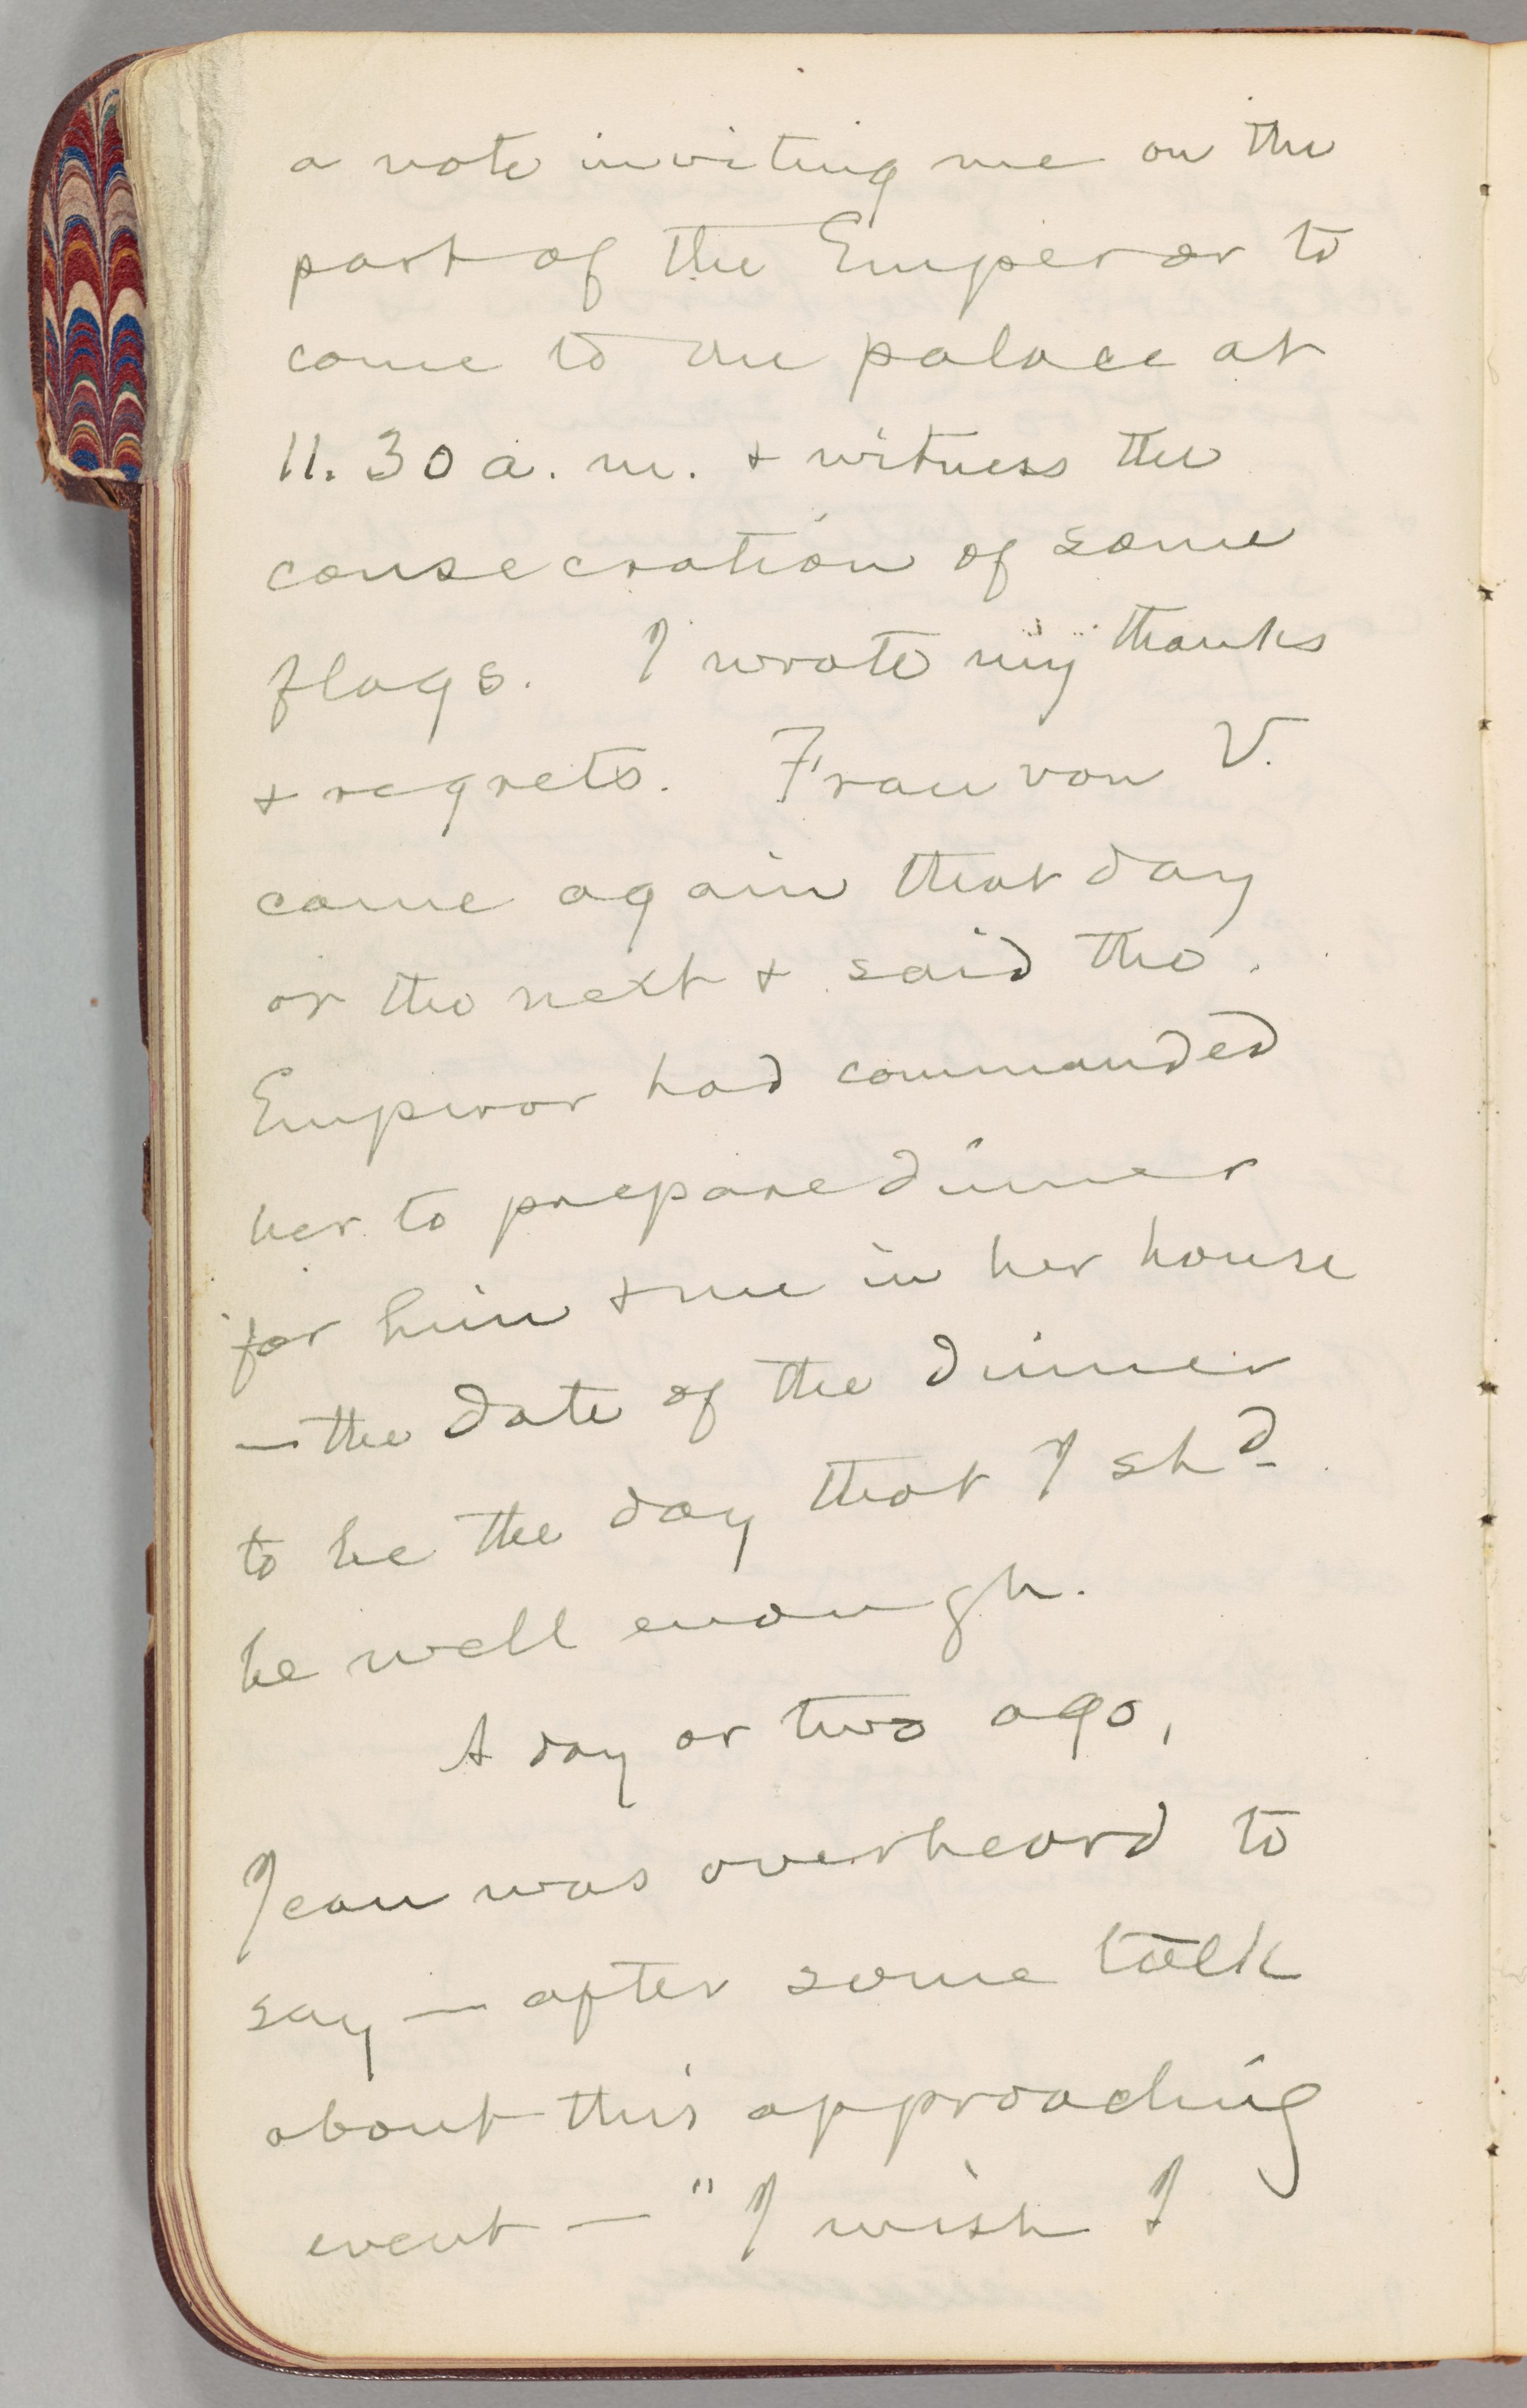 a note inviting me on the
part of the Emperor to
come to the palace at
11.30 a.m. + witness the
consecration of some
flags. I wrote my thanks
+ regrets. Frau von V.
came again that day
or the next + said the
Emperor had commanded
her to prepare dinner
for him + me in her house
— the date of the dinner
to be the day that I shd
be well enough.
A day or two ago,
Jean was overheard to
say — after some talk
about this approaching
event — "I wish I